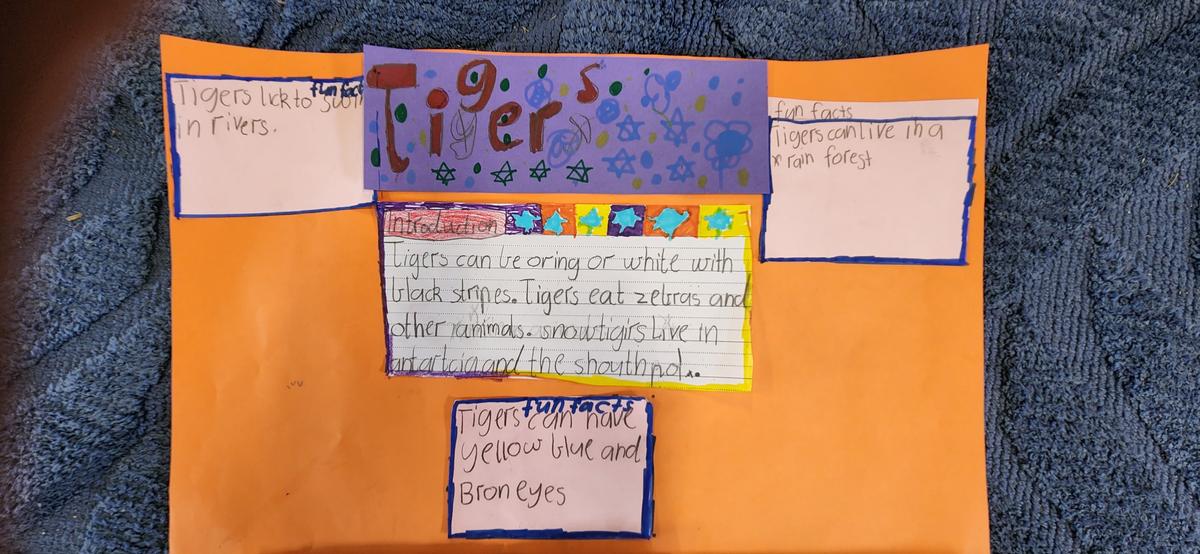 Tigers
fun fact
Tigers lick to swim
in rivers.
fun facts
Tigers can live in a
rain forest
Introduction
Tigers can be oring or white with
black stripes. Tigers eat zebras and
other animals. snowtigirs Live in
antartcia and the shouth pol..
fun facts
Tigers can have
yellow blue and
Bron eyes